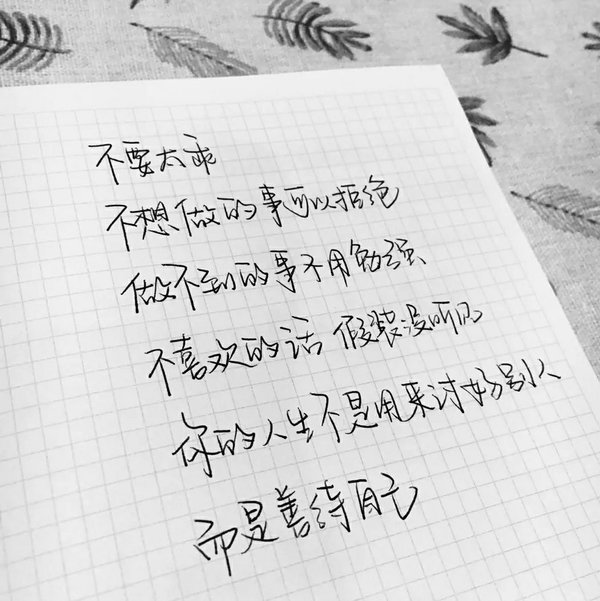 不要太乖
不想做的事可以拒绝
做不到的事不用勉强
不喜欢的话 假装没听见
你的人生不是用来讨好别人
而是善待自己